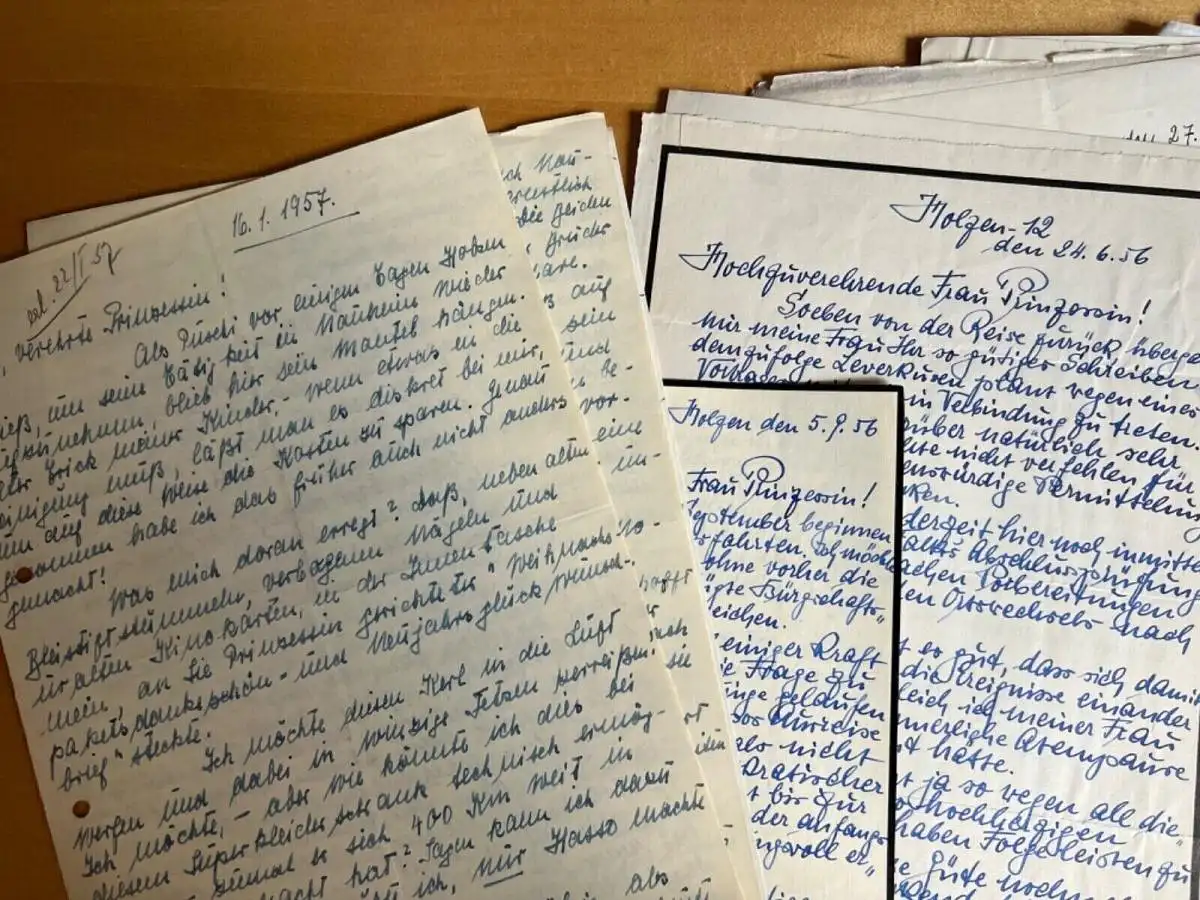 16. 1. 1957.
22/I 57
verehrte Prinzessin!
Als Puschi vor einigen Tagen Holzen
ließ, um seine Tätigkeit in Nauheim wieder
aufzunehmen, blieb hier sein Mantel hängen.
Alter Trick meiner Kinder, - wenn etwas in die
Reinigung muß, läßt man es diskret bei mir,
um auf diese Weise die Kosten zu sparen. Genau
genommen habe ich das früher auch nicht anders
gemacht!
Was mich daran erregt? Daß, neben alten
Bleistiftstummeln, verbogenen Nägeln und
uralten Kinokarten, in der Innentasche
mein, an Sie Prinzessin gerichteter "Weihnachts-
paketsdankeschön- und Neujahrsglückwunsch-
brief" steckte.
Ich möchte diesen Kerl in die Luft
werfen und dabei in winzige Fetzen zerreißen!
Ich möchte, - aber wie könnte ich dies bei
diesem Superkleiderschrank technisch ermög-
zumal er sich 400 Km weit in
hat? Sagen kann ich dazu
ich, nur Hasso machte
als
ch Nau-
die beiden
Brüder
auf
sein
und
be-
vor-
eine
un-
Holzen-12
den 24.6.56
Hochzuverehrende Frau Prinzessin!
Soeben von der Reise zurück, überge
mir meine Frau Ihr so gütiges Schreiben
demzufolge Leverkusen plant wegen eines
Vortrages
in Verbindung zu treten.
rüber natürlich sehr
nicht verfehlen für
enswürdige Vermittelung
ken.
derzeit hier noch inmitte
Abschlussprüfung
achen Vorbereitungen
en Ortswechsels nach
es gut, dass sich damit
die Ereignisse einander
leich ich meiner Frau
Atempause
t hätte.
t ja so wegen all die
hochherzigen
haben Folge leisten zu
Güte noch
Holzen den 5.9.56
Frau Prinzessin!
September beginnen
fahrten. Ich möchte
ohne vorher die
gte Bürgschafts-
eichen.
einiger Kraft
ie Frage zu
inge gelaufen
Ausreise
als nicht
kratischer
t bis zur
der anfangs
ngsvoll er"
27.